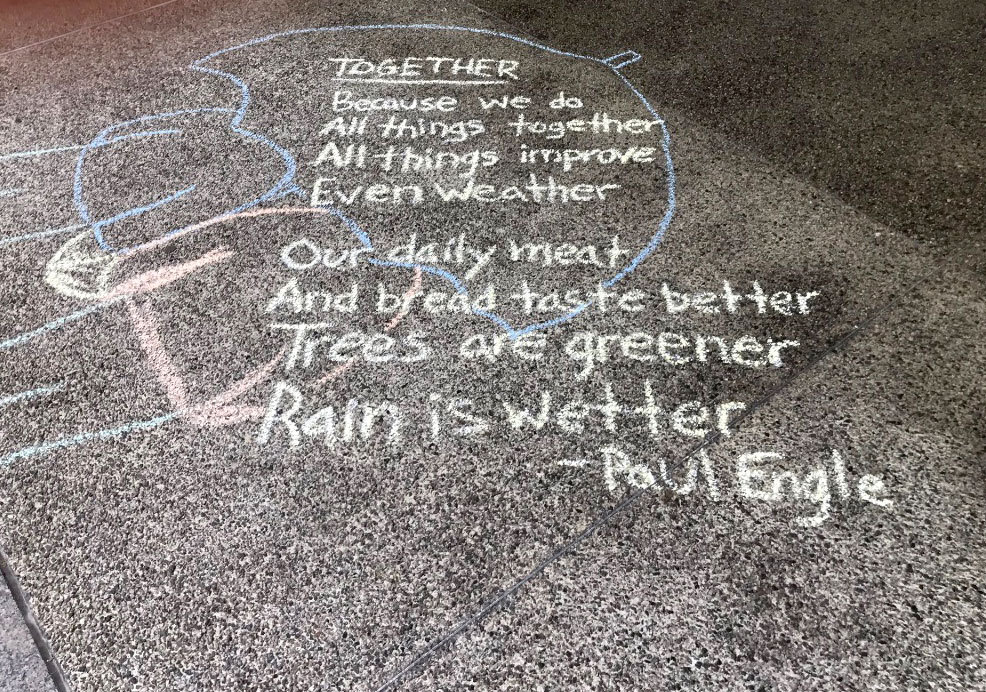 TOGETHER
Because we do
All things together
All things improve
Even Weather
Our daily meat
And bread taste better
Trees are greener
Rain is wetter
- Paul Engle